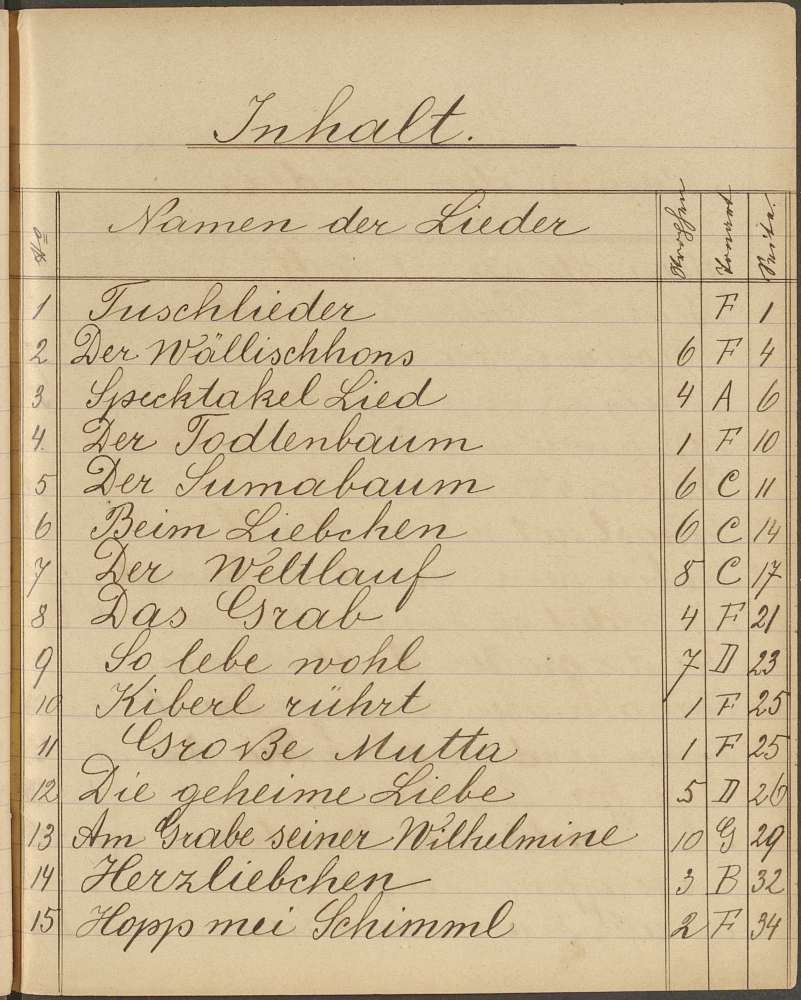 Inhalt.
No Namen der Lieder Strophen Tonart Seite.
1 Tuschlieder F 1
2 Der Wällischhons 6 F 4
3 Specktakel Lied 4 A 6
4. Der Todtenbaum 1 F 10
5 Der Sumabaum 6 C 11
6 Beim Liebchen 6 C 14
7 Der Weltlauf 8 C 17
8 Das Grab 4 F 21
9 So lebe wohl 7 D 23
10 Kiberl rührt 1 F 25
11 Große Mutta 1 F 25
12 Die geheime Liebe 5 D 26
13 Am Grabe seiner Wilhelmine 10 G 29
14 Herzliebchen 3 B 32
15 Hopp mei Schimml 2 F 34